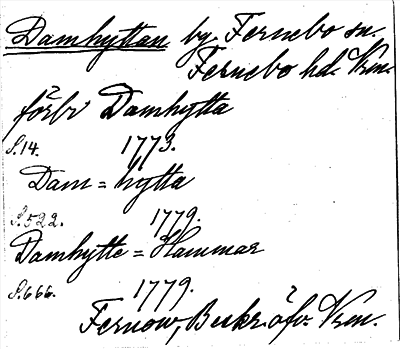 Damhyttan by, Fernebo sn.
Fernebo hd. Vrm.
förbi Damhytta
S.14. 1773.
Dam=hytta
S.522. 1779.
Damhytte=Hammar
S.666. 1779.
Fernow, Beskr. öfv. Vrm.